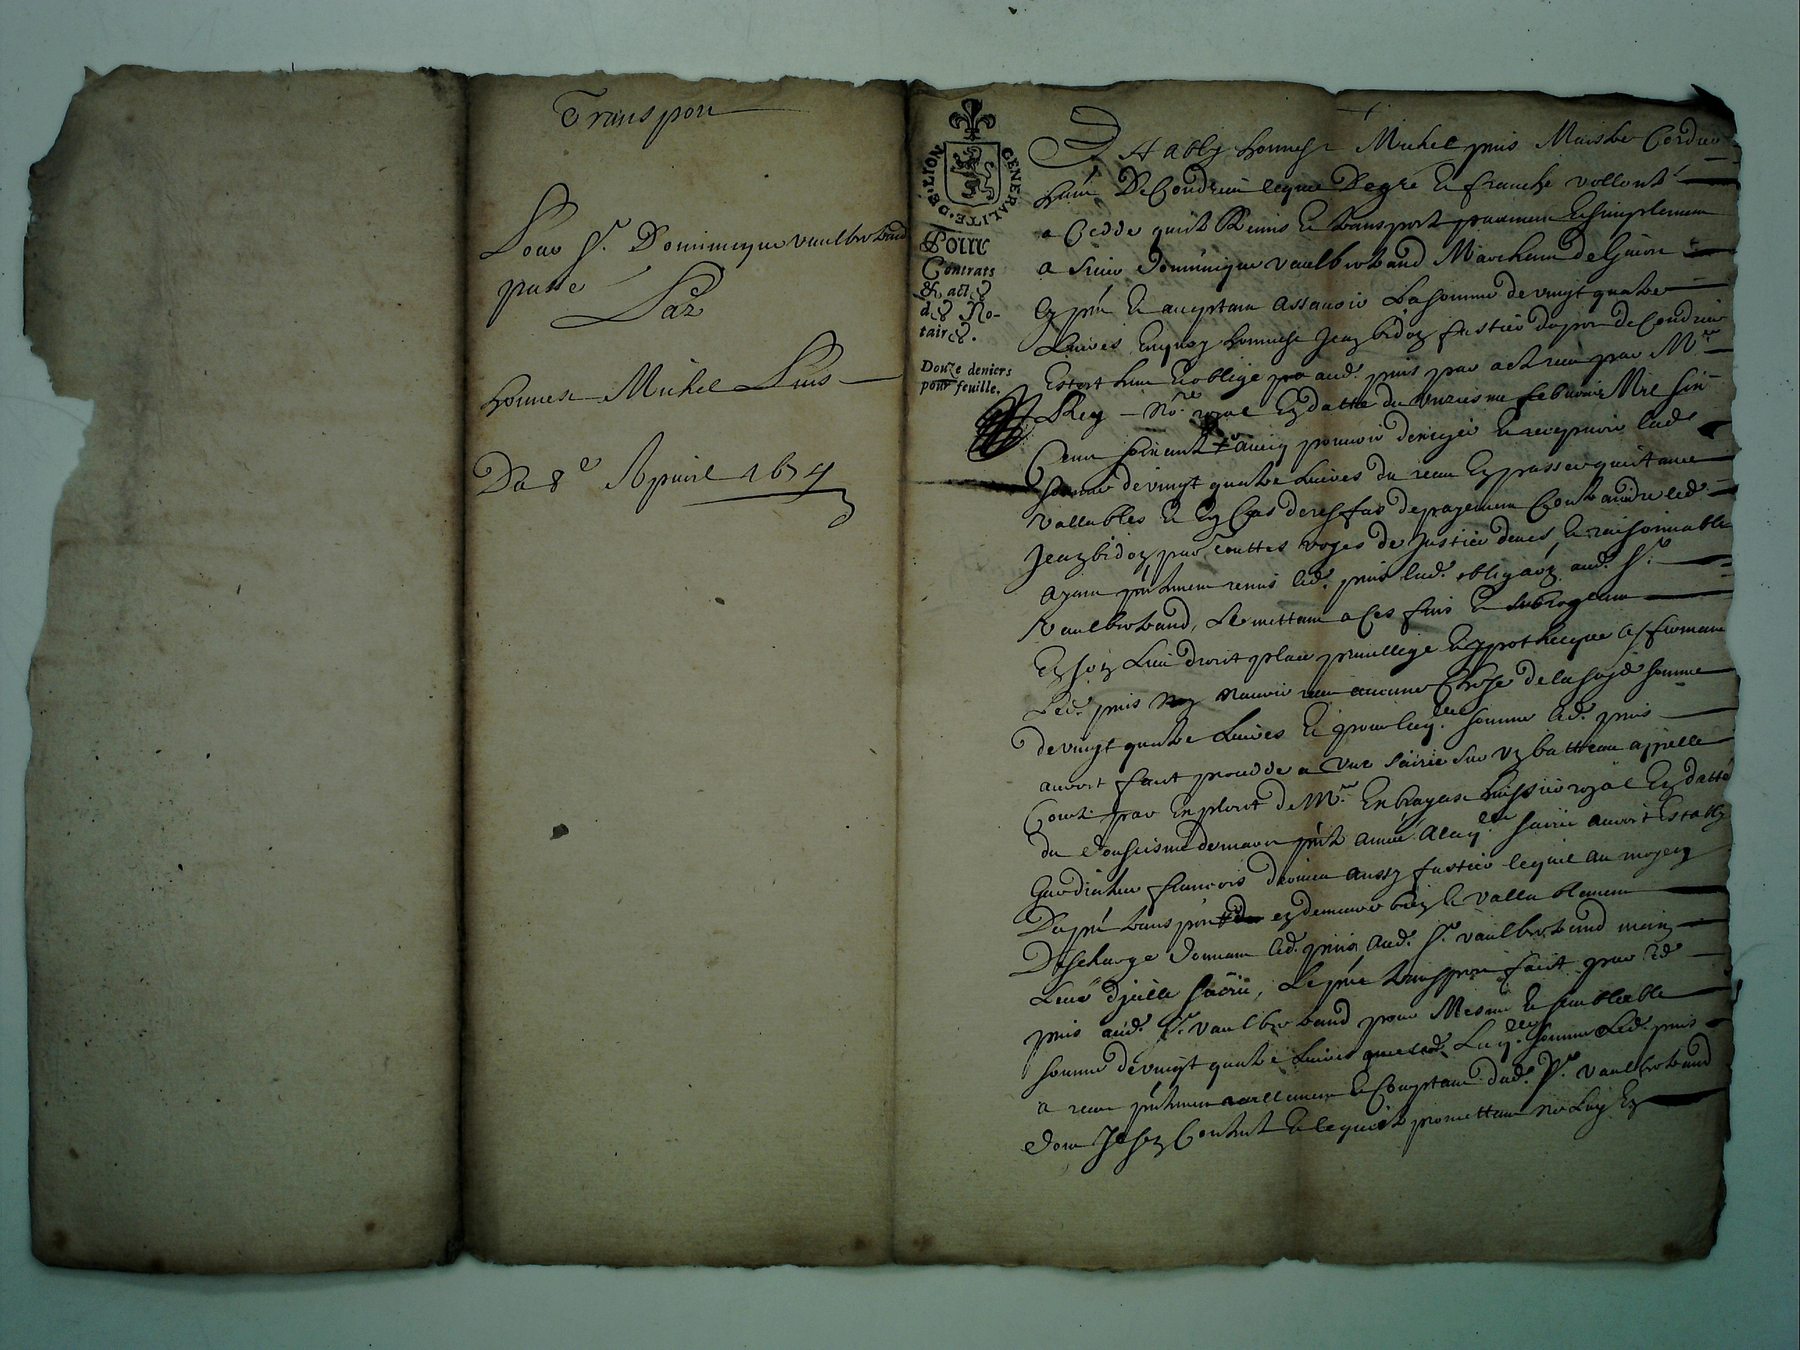 Transport
Pour Sr. Dominicque vaulbertrand
passé
Par
honneste Michel Puis
Du 8e Apvril 1674
GENERALITE · DE · LION
Pour
Contrats
& actes
des No-
taires.
Douze deniers
pour feuille.
Estably honneste Michel puis Maistre Cordier
de Condrieu lequel de gré et franche vollonté
a Cedde quitté Remis et transporté purement et simplement
a sieur Dominique vaulbertrand Marchand de
pnt et acceptant assavoir La somme de vingt quatre
Livres Enquoy honneste Jean bidon fustier du port de Condrieu
Estoit tenu et obligé aud. puis par acte receu par Mre
Rey Nore royal En datte du unziesme febvrier Mil six
Cent soixante avecq pouvoir dexiger et recepvoir lad.
somme de vingt quatre Livres du receu En passer quittance
vallables et En Cas de reffus de payement Contraindre led.
Jean bidon par touttes voyes de Justice deues et raisonnable
ayant pntement remis led. puis lad. obligaõn aud. Sr.
Vaulbertrand, Le mettant a Ces fins et subrogeant
En son Lieu droit place privillege et ypothecque affirmant
Led. puis Ny avoir receu aucune Chose de la susd. somme
de vingt quatre Livres Et pour laqlle somme led. puis
auroit faict proceder a une saisie sur un batteau appellé
par Exploit de Mre huissier royal En datte
du douziesme de mars pnt année a laqlle saisie auroit Estably
Gardiateur francois aussy fustier lequel au moyen
Du pnt transport en demeure bien et vallablement
Descharge donnant led. puis aud. Sr. vaulbertrand main
Levée d'jcelle saisie, Le pnt transport faict par led.
puis aud. Sr. vaulbertrand pour Mesme et semblable
somme de vingt quatre Livres Laqlle somme Led. puis
a receu pntement reallement et Comptant dud. Sr. vaulbertrand
dont Jl sen Contente et le quitte promettant ne Luy En